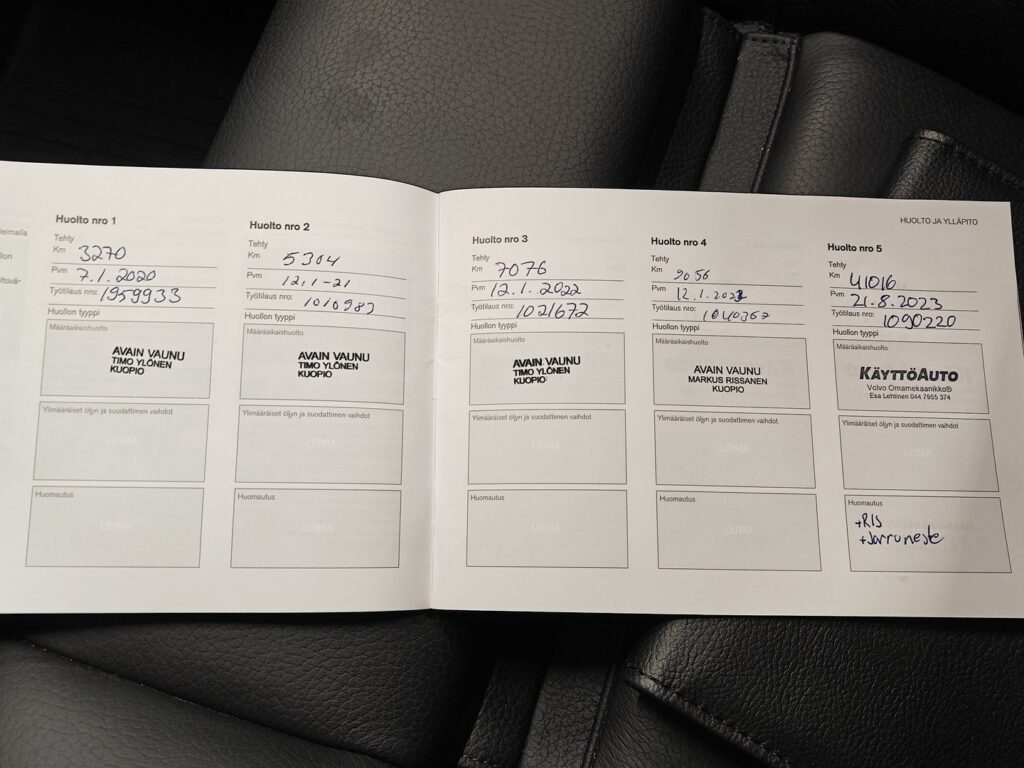 HUOLTO JA YLLÄPITO
Huolto nro 1
Tehty
Km 3270
Pvm 7.1.2020
Työtilaus nro: 1959933
Huollon tyyppi
Määräaikaishuolto
AVAIN VAUNU
TIMO YLÖNEN
KUOPIO
Ylimääräiset öljyn ja suodattimen vaihdot
LEIMA
Huomautus
LEIMA
Huolto nro 2
Tehty
Km 5304
Pvm 12.1-21
Työtilaus nro: 1010983
Huollon tyyppi
Määräaikaishuolto
AVAIN VAUNU
TIMO YLÖNEN
KUOPIO
Ylimääräiset öljyn ja suodattimen vaihdot
LEIMA
Huomautus
LEIMA
Huolto nro 3
Tehty
Km 7076
Pvm 12.1.2022
Työtilaus nro: 1021672
Huollon tyyppi
Määräaikaishuolto
AVAIN VAUNU
TIMO YLÖNEN
KUOPIO
Ylimääräiset öljyn ja suodattimen vaihdot
LEIMA
Huomautus
LEIMA
Huolto nro 4
Tehty
Km 9056
Pvm 12.1.2023
Työtilaus nro: 1040367
Huollon tyyppi
Määräaikaishuolto
AVAIN VAUNU
MARKUS RISSANEN
KUOPIO
Ylimääräiset öljyn ja suodattimen vaihdot
LEIMA
Huomautus
LEIMA
Huolto nro 5
Tehty
Km 41016
Pvm 21.8.2023
Työtilaus nro: 1090220
Huollon tyyppi
Määräaikaishuolto
KÄYTTÖAUTO
Volvo Omamekaanikko®
Esa Lehtinen 044 7955 374
Ylimääräiset öljyn ja suodattimen vaihdot
LEIMA
Huomautus
+RIS
+Jarruneste